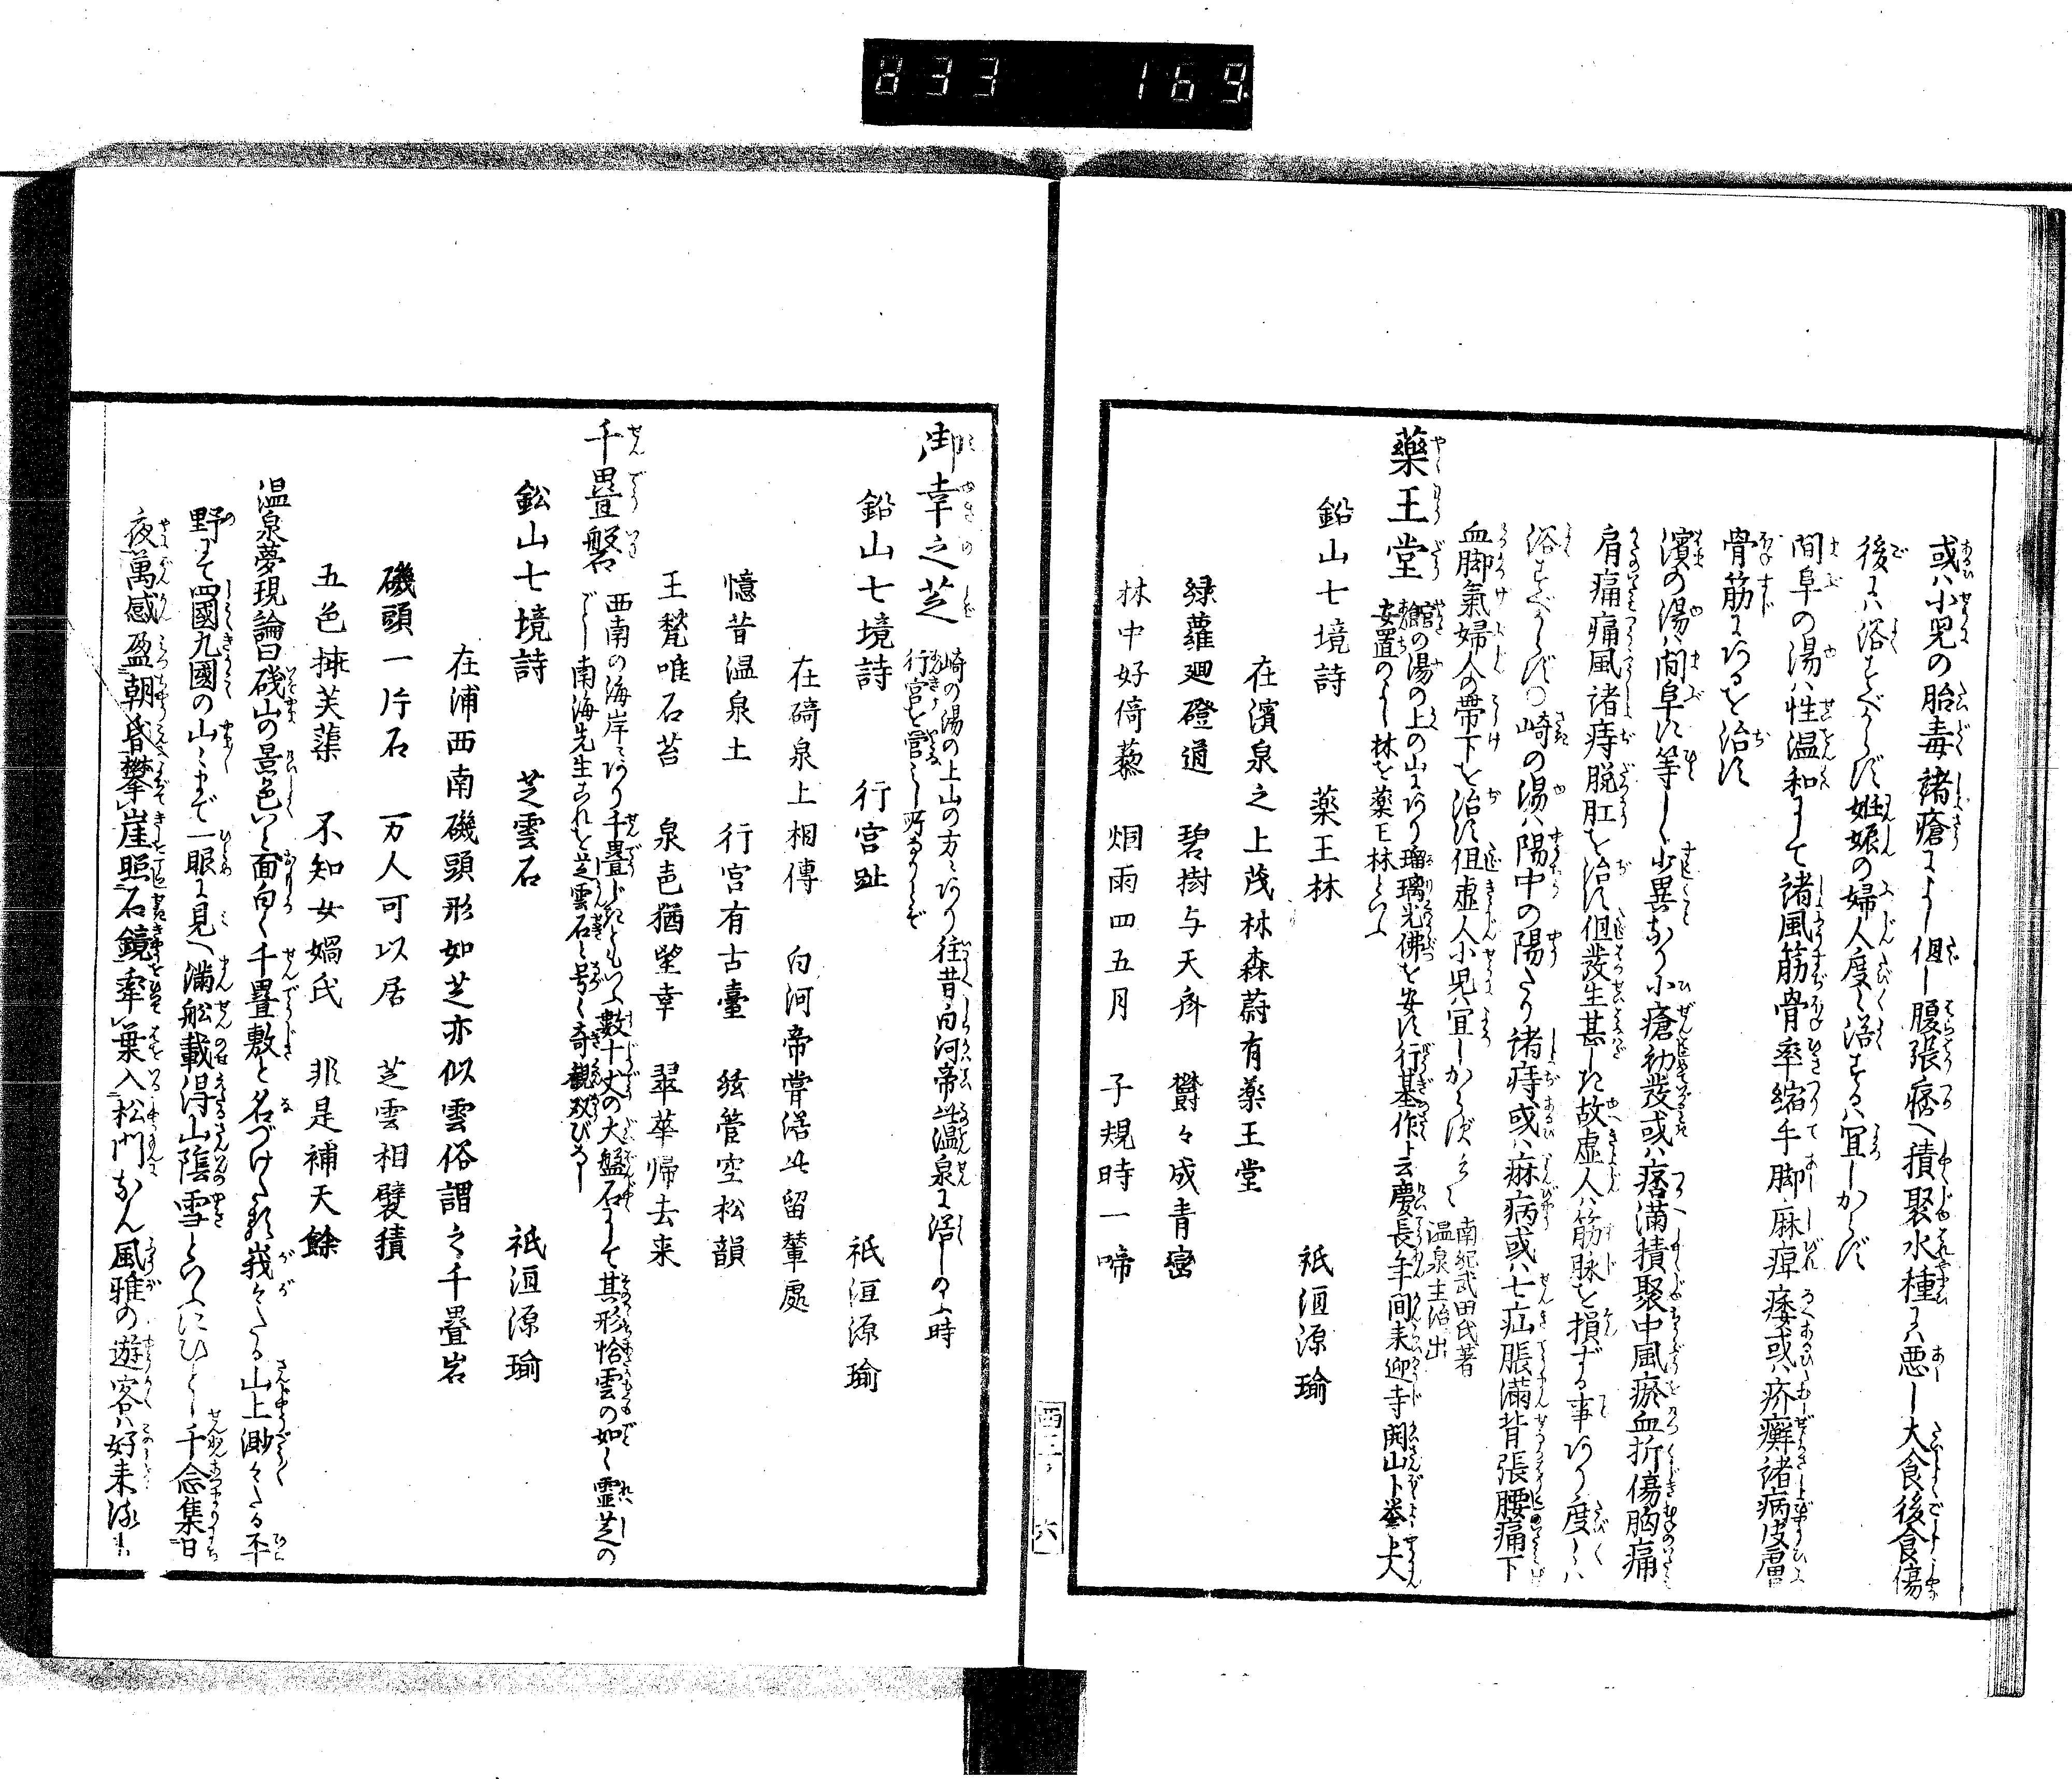 833 169
或ハ小児の胎毒諸瘡によし但し腹張痞へ積聚水種にハ悪し大食後食傷
後にハ浴すべからず妊娠の婦人度々浴するハ宜しからず
間阜の湯ハ性温和にして諸風筋骨率縮手脚麻痺痿或ハ疥癬諸病皮膚
骨筋にあるを治す
濱の湯ハ間阜に等しく少異あり小瘡初発或ハ痞満積聚中風瘀血折傷胸痛
肩痛痛風諸痔脱肛を治す但発生甚しき故虚人ハ筋脉を損ずる事あり度々ハ
浴すべからず○崎の湯ハ陽中の陽たり諸痔或ハ痳病或ハ七疝脹満背張腰痛下
血脚氣婦人の帯下を治す但虚人小児ハ宜しからず
南紀武田氏著
温泉主治出
藥王堂
舘の湯の上の山にあり瑠璃光佛を安す行基作ト云慶長年間来迎寺開山ト養上人
安置のよし林を薬王林といふ
鉛山七境詩 薬王林 祇洹源瑜
在濱泉之上茂林森蔚有薬王堂
緑蘿廻磴通 碧樹与天斉 欝々成青巒
林中好倚藜 烟雨四五月 子規時一啼
西三 六
御幸之芝
崎の湯の上山の方にあり往昔白河帝温泉に浴しの時
行宮を営し所なりとぞ
鉛山七境詩 行宮趾 祇洹源瑜
在碕泉上相傳 白河帝嘗浴此留輦處
憶昔温泉土 行宮有古臺 絃管空松韻
王甃唯石苔 泉邑猶望幸 翠華帰去来
千畳磐
西南の海岸にあり千畳じきともいふ數十丈の大盤石にして其形恰雲の如く霊芝の
ごとし南海先生これを芝雲石と号く奇観双びなし
鈆山七境詩 芝雲石 祇洹源瑜
在浦西南磯頭形如芝亦似雲俗謂之千畳岩
磯頭一片石 万人可以居 芝雲相襞積
五色擁芙蕖 不知女媧氏 非是補天餘
温泉夢現論曰磯山の景色いと面白く千畳敷と名づけたり峩々たる山上渺々たる平
野にて四國九國の山々まで一眼に見へ満舩載得山陰雪といふにひとし千念集日
夜萬感盈朝昏攀崖照石鏡牽葉入松門なん風雅の遊客ハ好来